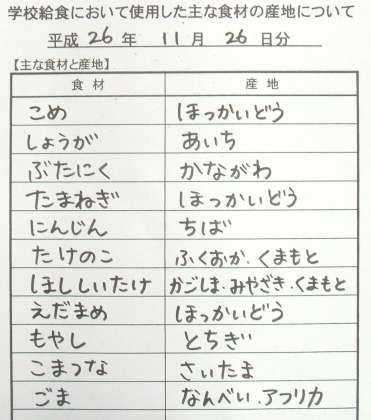 学校給食において使用した主な食材の産地について
平成 26 年 11 月 26 日分
【主な食材と産地】
食材 産地
こめ ほっかいどう
しょうが あいち
ぶたにく かながわ
たまねぎ ほっかいどう
にんじん ちば
たけのこ ふくおか.くまもと
ほししいたけ かごしま.みやざき.くまもと
えだまめ ほっかいどう
もやし とちぎ
こまつな さいたま
ごま なんべい.アフリカ